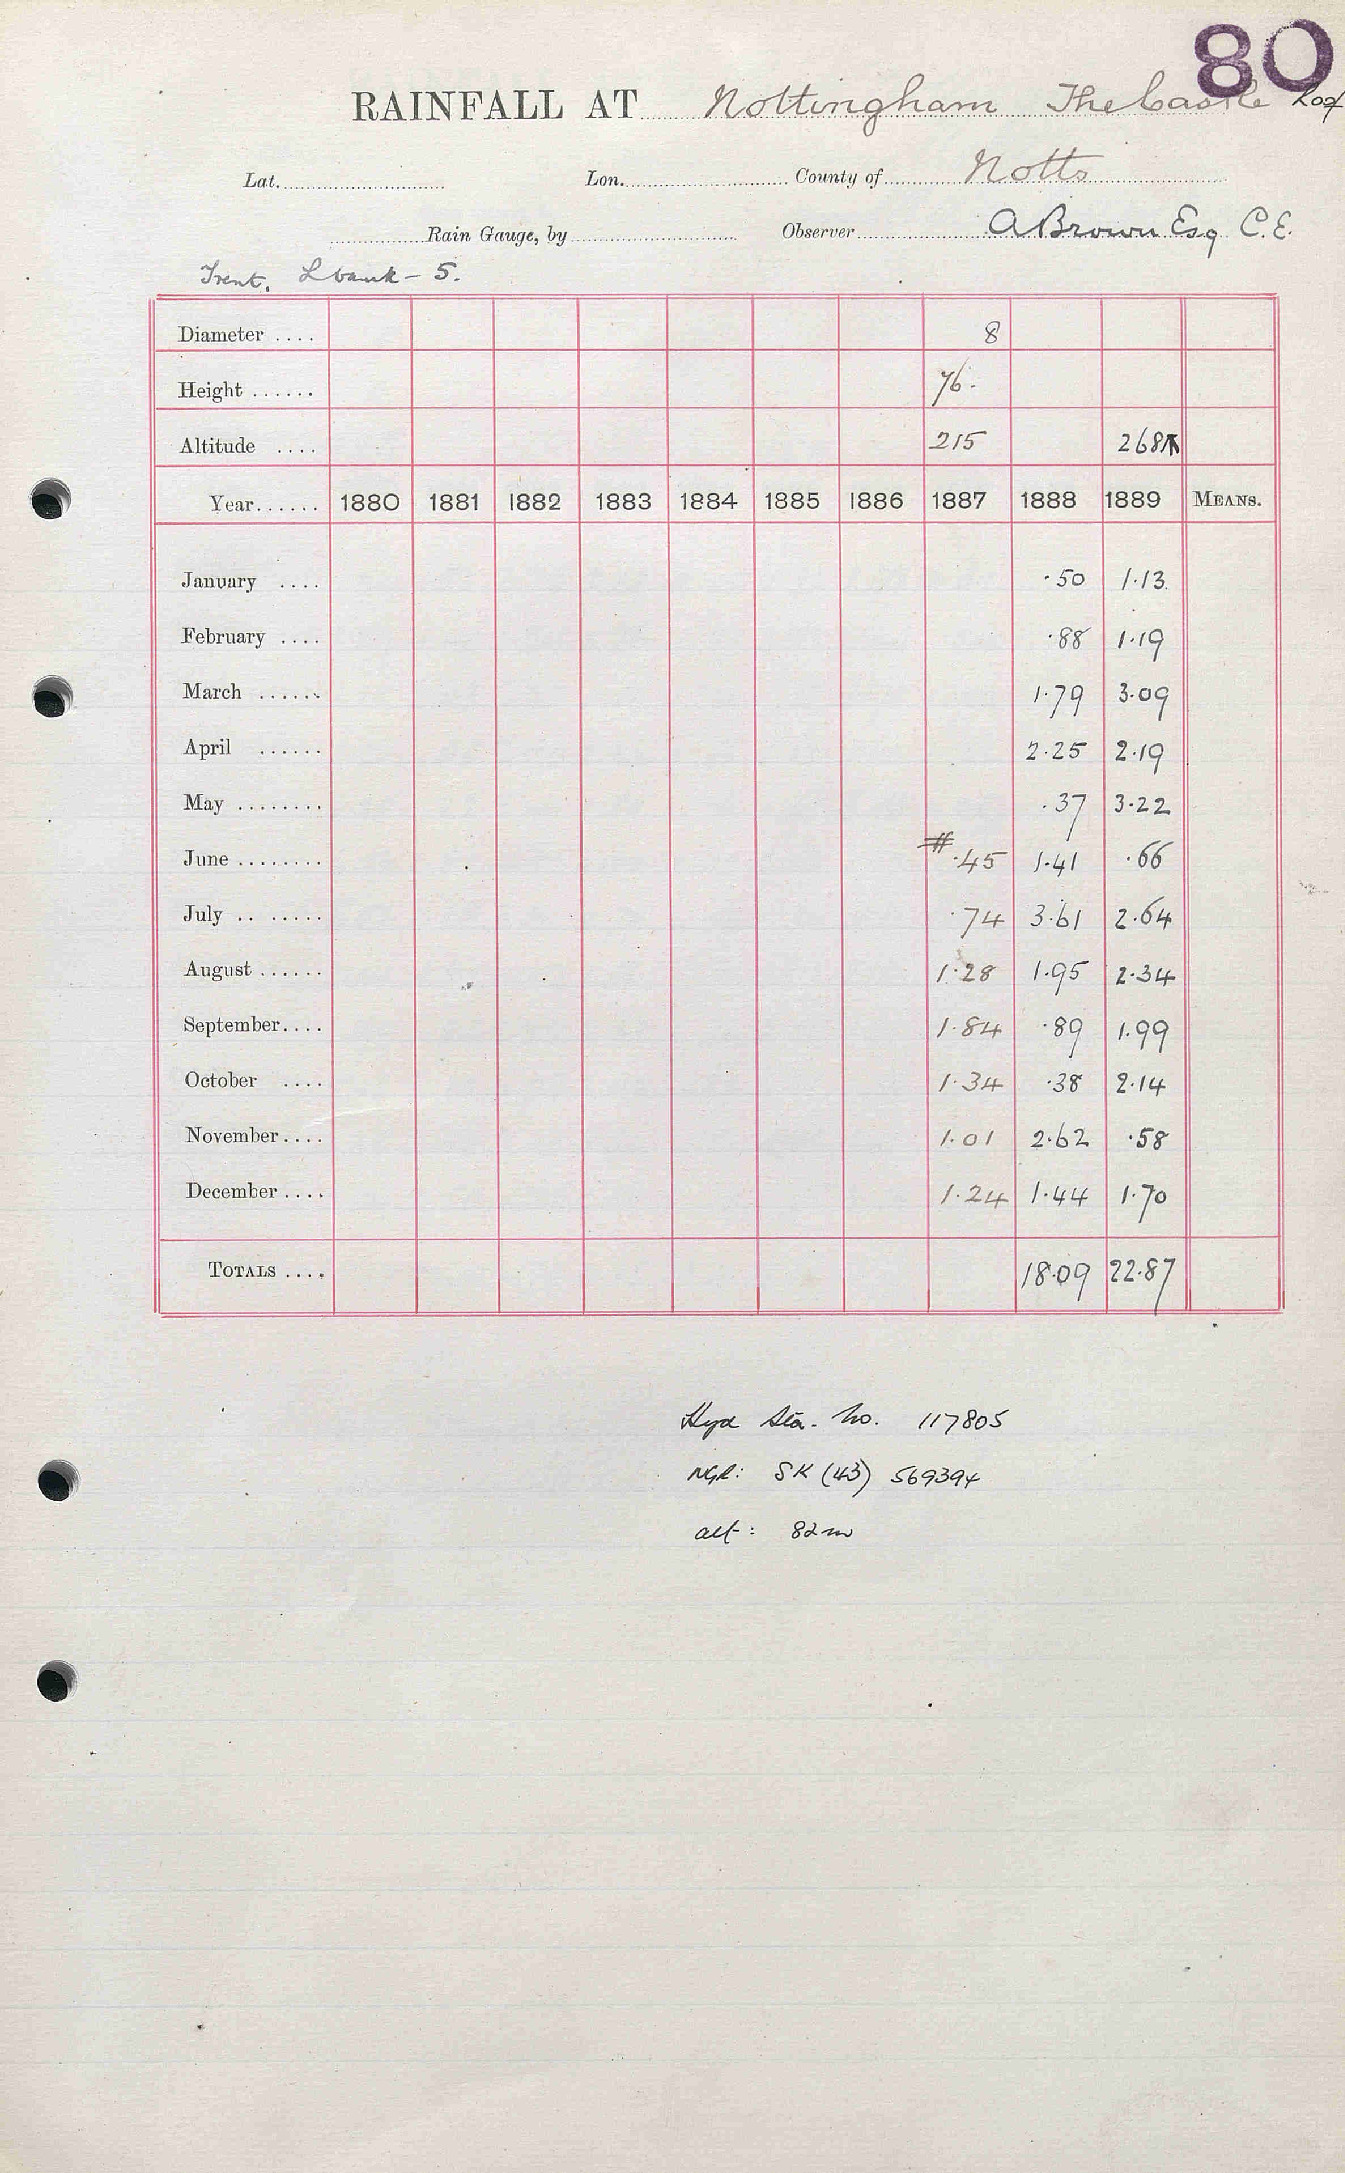 80
RAINFALL AT Nottingham The Castle Roof
Lat. Lon. County of Notts
Rain Gauge, by Observer A Brown Esq C.E.
Trent, L bank - 5.
Diameter .... 8
Height ...... 76.
Altitude .... 215 268
Year...... 1880 1881 1882 1883 1884 1885 1886 1887 1888 1889 MEANS.
January .... ·50 1·13
February .... ·88 1·19
March ...... 1·79 3·09
April ...... 2·25 2·19
May ........ ·37 3·22
June ........ # ·45 1·41 ·66
July .. ..... ·74 3·61 2·64
August ...... 1·28 1·95 2·34
September.... 1·84 ·89 1·99
October .... 1·34 ·38 2·14
November.... 1·01 2·62 ·58
December.... 1·24 1·44 1·70
TOTALS .... 18·09 22·87
Hyd Sta. No. 117805
NGR: SK (43) 569394
alt: 82m